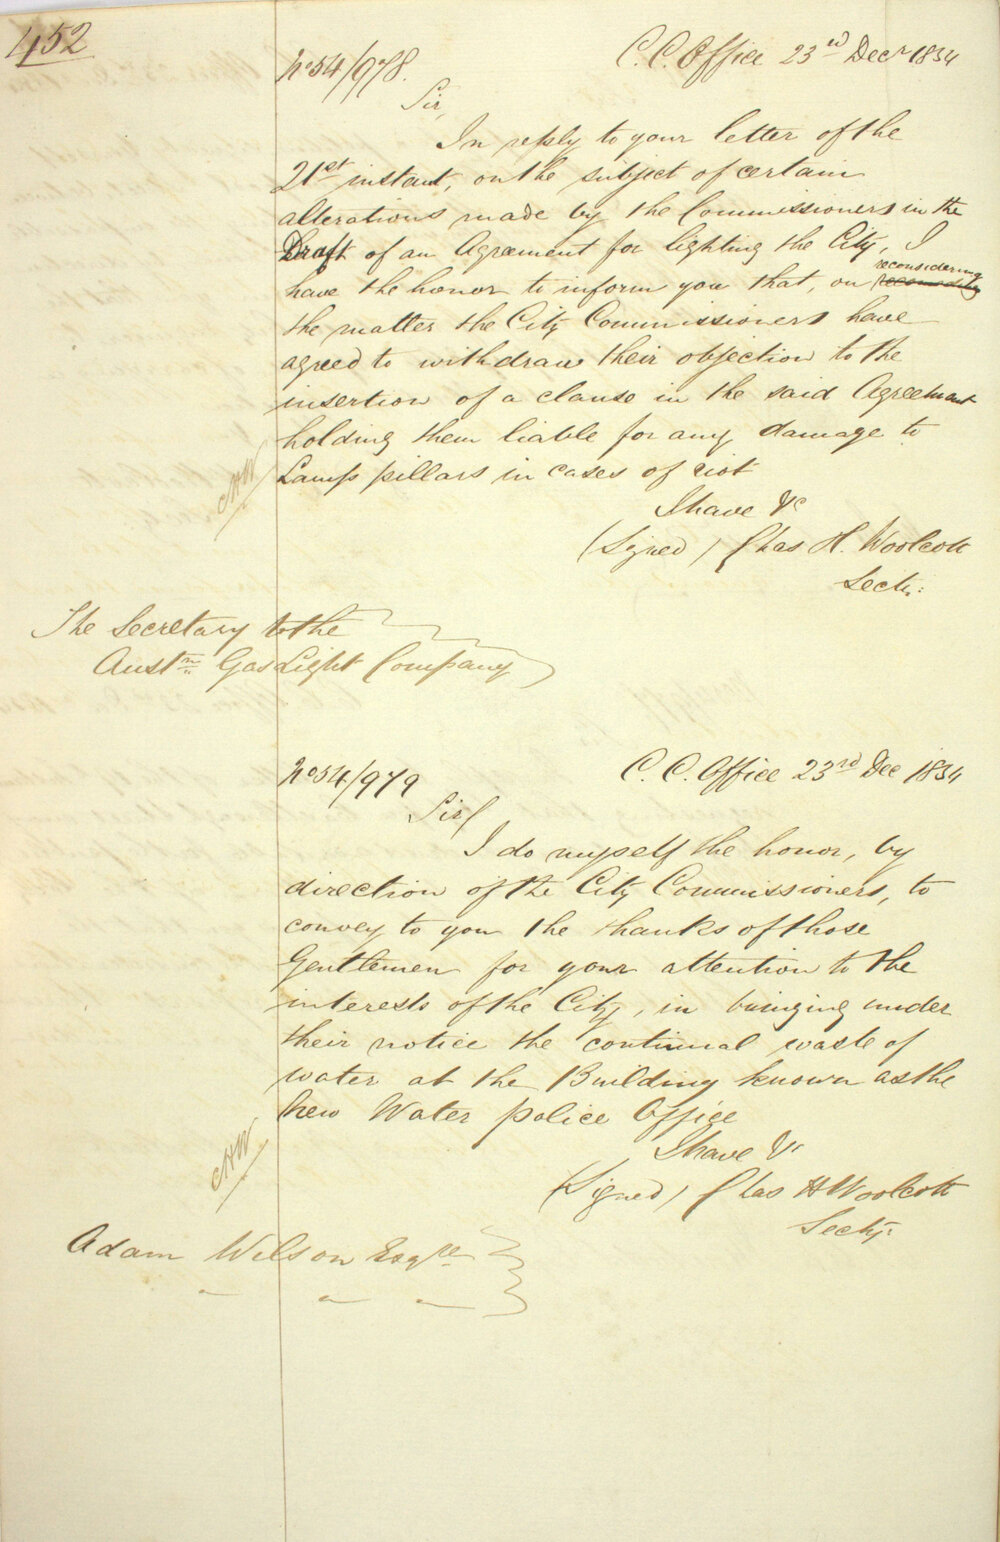 452
No 54/978. C. C. Office 23rd Decr 1854
Sir,
In reply to your letter of the
21st instant, on the subject of certain
alterations made by the Commissioners in the
Draft of an Agreement for lighting the City, I
have the honor to inform you that, on reconsidering
the matter the City Commissioners have
agreed to withdraw their objection to the
insertion of a clause in the said Agreement
holding them liable for any damage to
Lamp pillars in cases of riot
CHW
I have &c
(Signed) Chas H. Woolcott
Secty:
The Secretary to the
Austn Gas Light Company
No 54/979 C. C. Office 23rd Dec 1854
Sir/
I do myself the honor, by
direction of the City Commissioners, to
convey to you the thanks of those
Gentlemen for your attention to the
interests of the City, in bringing under
their notice the continual waste of
water at the Building known as the
new Water police Office
CHW
I have &c
(Signed) Chas H Woolcott
Secty:
Adam Wilson Esqre